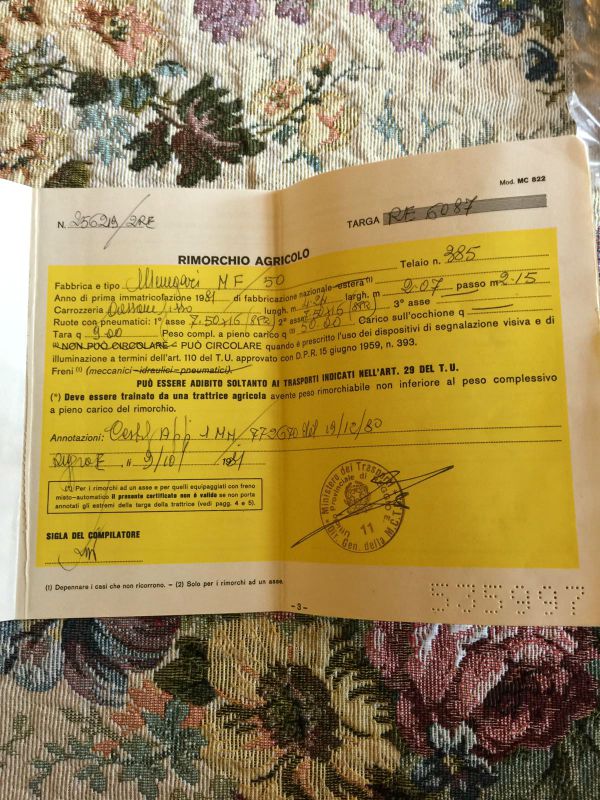 Mod. MC 822
N. 25629/2RE TARGA RE 6087
RIMORCHIO AGRICOLO
Telaio n. 385
Fabbrica e tipo MF 50
Anno di prima immatricolazione 1981 di fabbricazione nazionale estera (1)
Carrozzeria lungh. m 4.24 largh. m 2.07 passo m 2.15
Ruote con pneumatici: 1° asse 7.50x16 (8PR) 2° asse 7.50x16 (8PR) 3° asse
Tara q 9.00 Peso compl. a pieno carico q 50.00 Carico sull'occhione q
(1) NON PUÒ CIRCOLARE - PUÒ CIRCOLARE quando è prescritto l'uso dei dispositivi di segnalazione visiva e di
illuminazione a termini dell'art. 110 del T.U. approvato con D.P.R. 15 giugno 1959, n. 393.
Freni (1) (meccanici - idraulici - pneumatici).
PUÒ ESSERE ADIBITO SOLTANTO AI TRASPORTI INDICATI NELL'ART. 29 DEL T. U.
(*) Deve essere trainato da una trattrice agricola avente peso rimorchiabile non inferiore al peso complessivo
a pieno carico del rimorchio.
Annotazioni: App MM 772670 del 19/12/80
, li 9/10/ 1981
(*) Per i rimorchi ad un asse e per quelli equipaggiati con freno
misto-automatico il presente certificato non è valido se non porta
annotati gli estremi della targa della trattrice (vedi pagg. 4 e 5).
SIGLA DEL COMPILATORE
Ministero dei Trasporti
Provinciale di
11
Dir. Gen. della M.C.T.C.
(1) Depennare i casi che non ricorrono. – (2) Solo per i rimorchi ad un asse.
– 3 –
535997